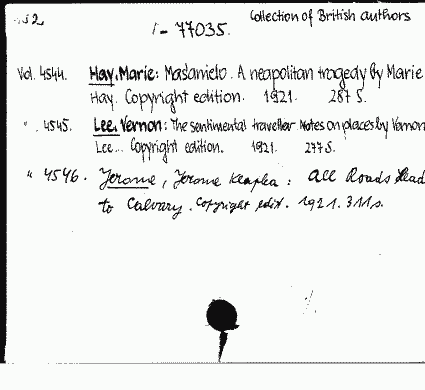 Collection of British authors
1-77035.
Vol. 4544. Hay, Marie: Masaniello. A neapolitan tragedy by Marie
Hay. Copyright edition. 1921. 287 S.
" . 4545. Lee, Vernon: The sentimental traveller. Notes on places by Vernon
Lee... Copyright edition. 1921. 277 S.
" 4546. Jerome, Jerome Klapka: All Roads Lead
to Calvary. Copyright edit. 1921. 311 s.